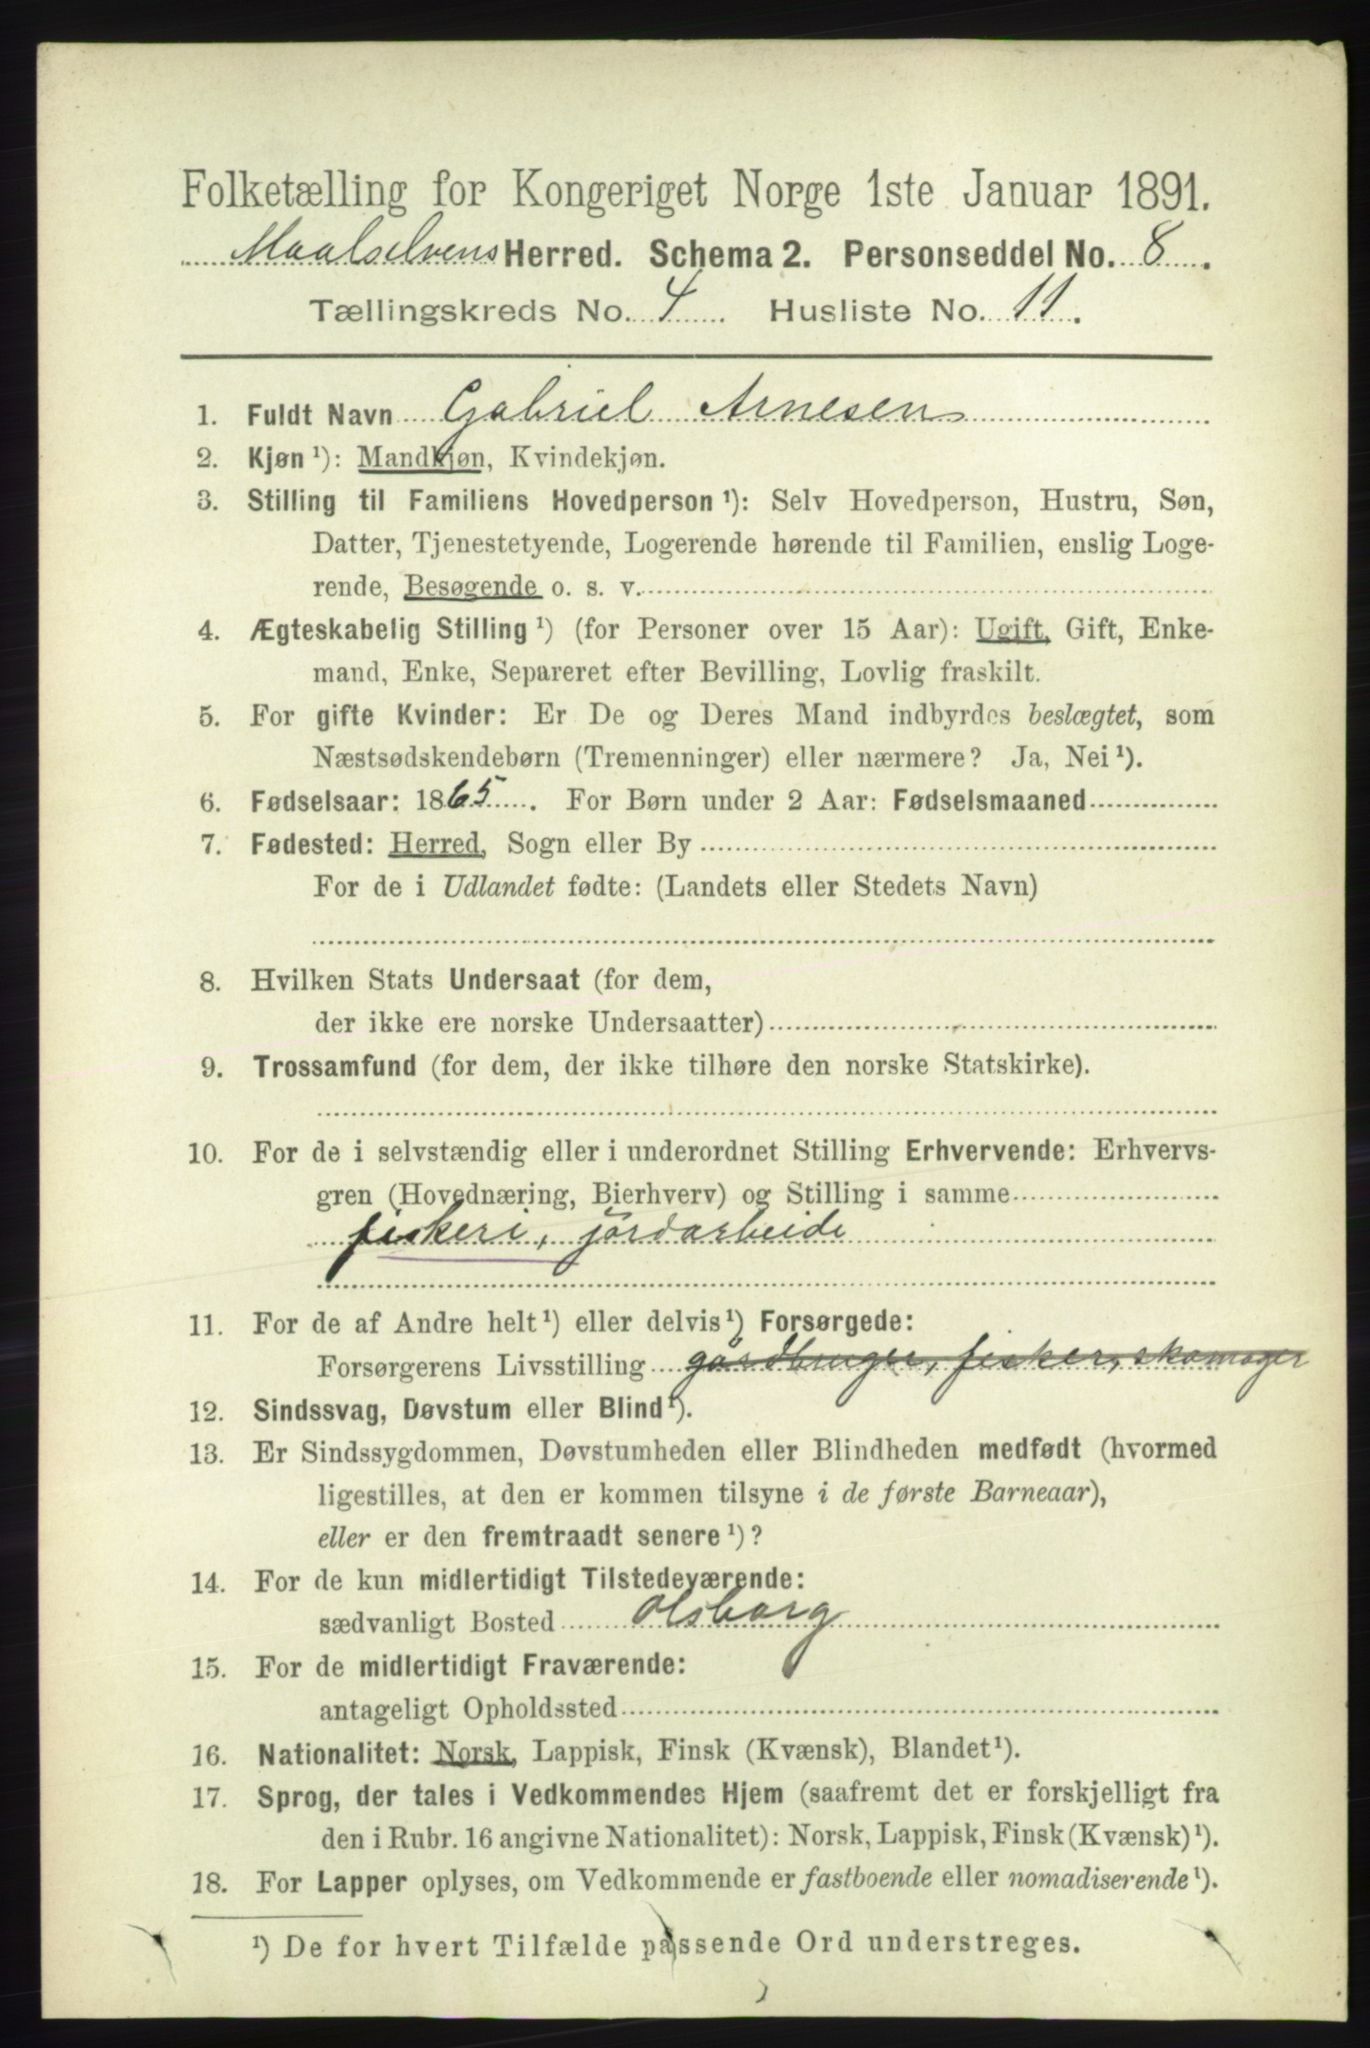 Folketælling for Kongeriget Norge 1ste Januar 1891.
Maalselvens Herred. Schema 2. Personseddel No. 8.
Tællingskreds No. 4 Husliste No. 11.
1. Fuldt Navn Gabriel Arnesen
2. Kjøn ¹): Mandkjøn, Kvindekjøn.
3. Stilling til Familiens Hovedperson ¹): Selv Hovedperson, Hustru, Søn,
Datter, Tjenestetyende, Logerende hørende til Familien, enslig Loge-
rende, Besøgende o. s. v.
4. Ægteskabelig Stilling ¹) (for Personer over 15 Aar): Ugift, Gift, Enke-
mand, Enke, Separeret efter Bevilling, Lovlig fraskilt.
5. For gifte Kvinder: Er De og Deres Mand indbyrdes beslægtet, som
Næstsødskendebørn (Tremenninger) eller nærmere? Ja, Nei ¹).
6. Fødselsaar: 1865. For Børn under 2 Aar: Fødselsmaaned
7. Fødested: Herred, Sogn eller By
For de i Udlandet fødte: (Landets eller Stedets Navn)
8. Hvilken Stats Undersaat (for dem,
der ikke ere norske Undersaatter)
9. Trossamfund (for dem, der ikke tilhøre den norske Statskirke).
10. For de i selvstændig eller i underordnet Stilling Erhvervende: Erhvervs-
gren (Hovednæring, Bierhverv) og Stilling i samme
fiskeri, jordarbeide
11. For de af Andre helt ¹) eller delvis ¹) Forsørgede:
Forsørgerens Livsstilling gårdbruger, fisker, skomager
12. Sindssvag, Døvstum eller Blind ¹).
13. Er Sindssygdommen, Døvstumheden eller Blindheden medfødt (hvormed
ligestilles, at den er kommen tilsyne i de første Barneaar),
eller er den fremtraadt senere ¹)?
14. For de kun midlertidigt Tilstedeværende:
sædvanligt Bosted Olsborg
15. For de midlertidigt Fraværende:
antageligt Opholdssted
16. Nationalitet: Norsk, Lappisk, Finsk (Kvænsk), Blandet ¹).
17. Sprog, der tales i Vedkommendes Hjem (saafremt det er forskjelligt fra
den i Rubr. 16 angivne Nationalitet): Norsk, Lappisk, Finsk (Kvænsk) ¹).
18. For Lapper oplyses, om Vedkommende er fastboende eller nomadiserende ¹).
¹) De for hvert Tilfælde passende Ord understreges.